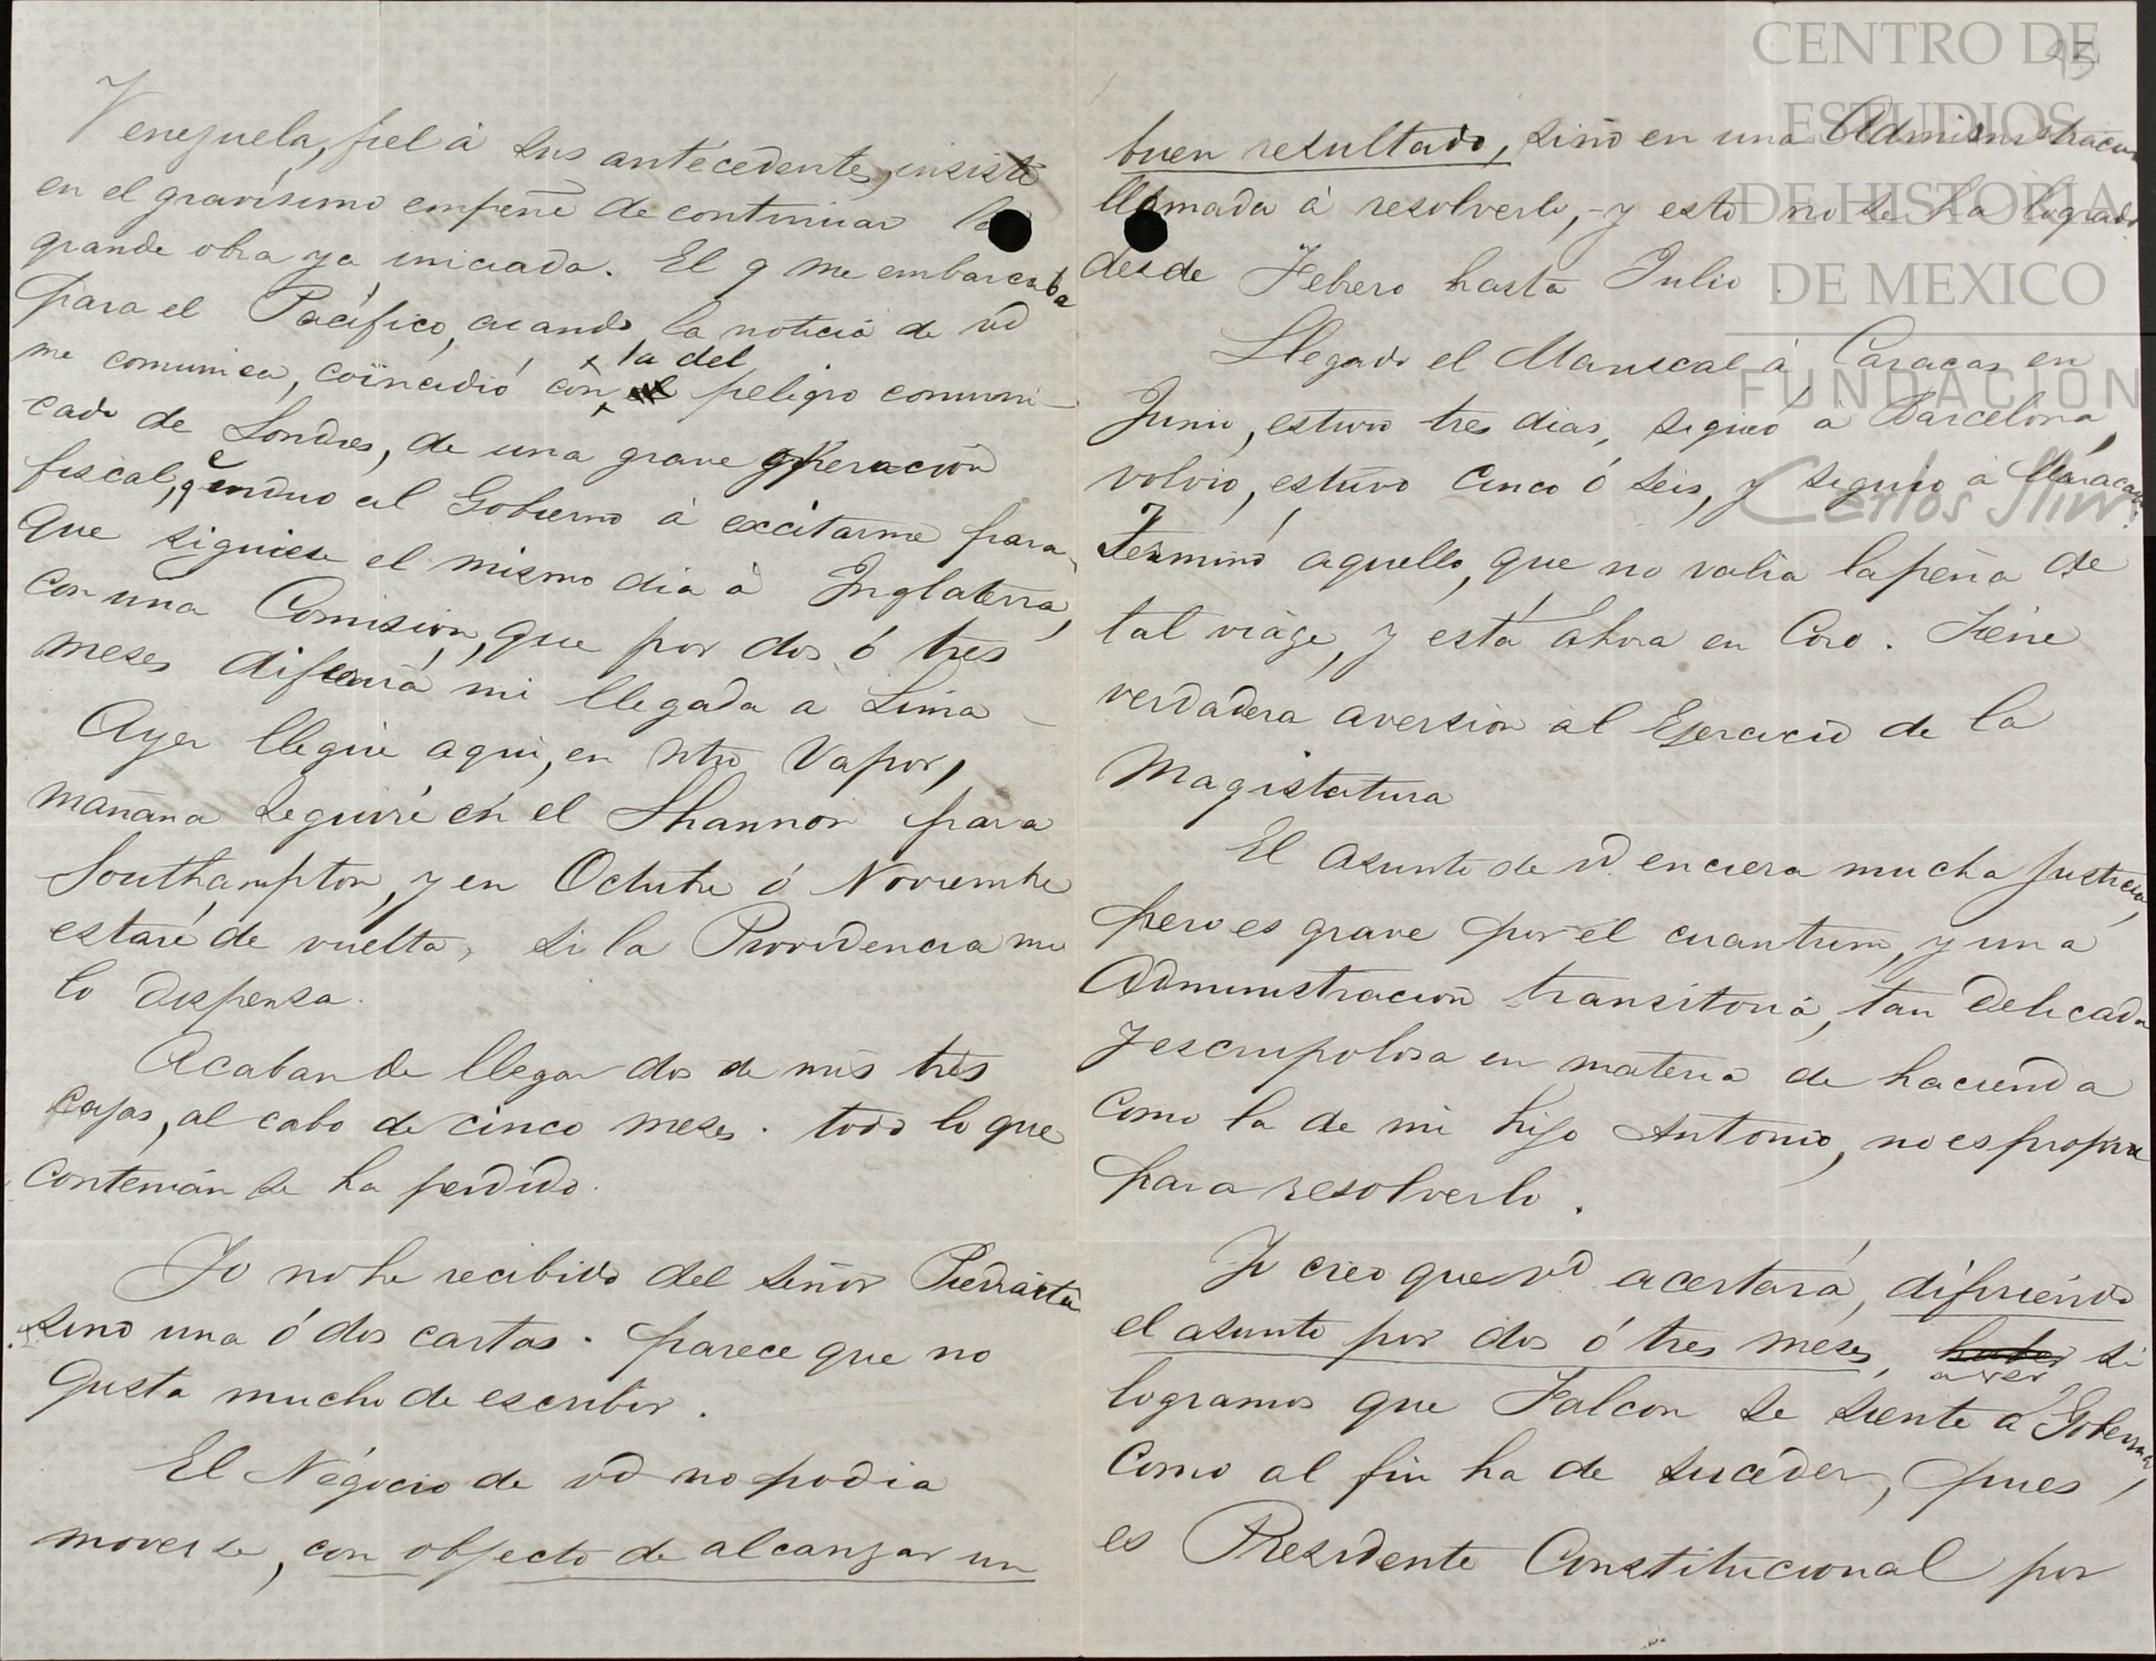 Venezuela, fiel á sus antecedentes, insiste
en el gravísimo empeñe de continuar la
grande obra ya iniciada. El q me embarcaba
para el Pacífico, cuando la noticia de vd
me comunica, coincidió con la del peligro comuni-
cado de Londres, de una grave operación
fiscal, q endujo al Gobierno á excitarme para
que siguiese el mismo dia á Inglaterra,
con una Comision, que por dos ó tres
meses diferirá mi llegada a Lima
Ayer llegué aqui, en ntro Vapor,
mañana seguiré en el Shannon para
Southampton, y en Octubre ó Noviembre
estaré de vuelta, si la Providencia me
lo dispensa.
Acaban de llegar dos de mis tres
cajas, al cabo de cinco meses. todo lo que
contenian se ha perdido.
Yo no he recibido del Señor Piedraita
sino una ó dos cartas. parece que no
gusta mucho de escribir.
El Negocio de vd no podia
moverse, con objecto de alcanzar un
93
buen resultado, sino en una Administracion
llamada á resolverlo, y esto no se ha logrado
desde Febrero hasta Julio.
Llegado el Mariscal á Caracas en
Junio, estuvo tres dias, siguió á Barcelona,
volvió, estuvo cinco ó seis, y siguió á Maracaibo.
Terminó aquello, que no valia la pena de
tal viage, y está ahora en Coro. Tiene
verdadera aversion al Ejercicio de la
Magistatura
El asunto de vd. encierra mucha justicia,
pero es grave por el cuantum, y una
Administracion transitoria, tan delicada
y escrupolosa en materia de hacienda
como la de mi hijo Antonio, no es propia
para resolverlo.
Yo creo que vd acertará, difiriendo
el asunto por dos ó tres meses, haber a ver si
logramos que Falcon se siente a Gobernar,
como al fin ha de suceder, pues
es Presidente Constitucional por
CENTRO DE
ESTUDIOS
DE HISTORIA
DE MEXICO
FUNDACIÓN
Carlos Slim